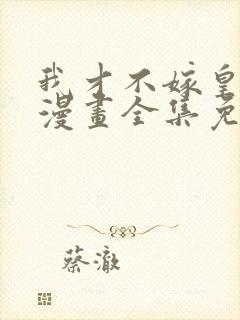 我才不嫁皇
漫畫全集免
蔡澈